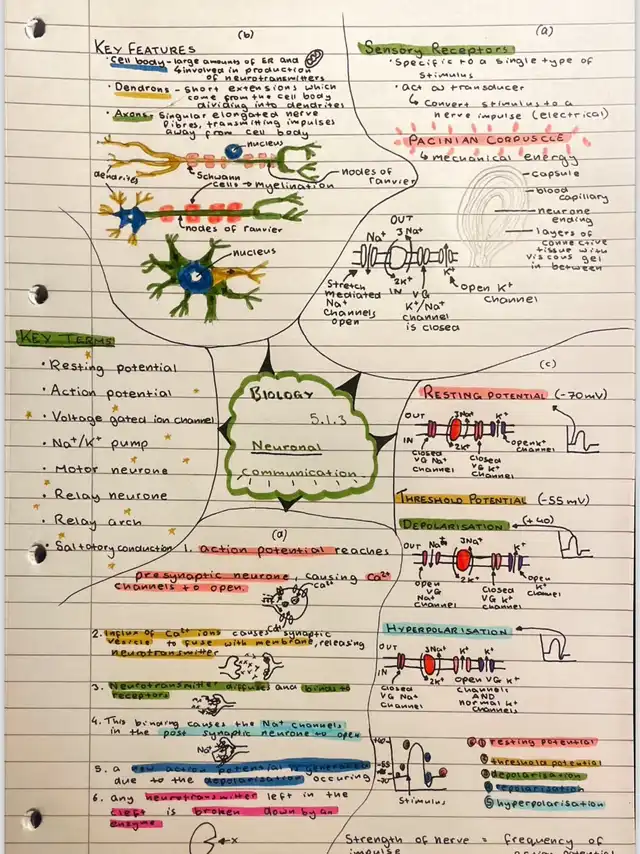 (b)
KEY FEATURES
· Cell body - large amounts of ER and
↳ involved in production
of neurotransmitters
· Dendrons - short extensions which
come from the cell body
dividing into dendrites
· Axons - Singular elongated nerve
fibres, transmitting impulses
away from cell body
nucleus
dendrites
Schwann
cells → myelination
nodes of
ranvier
nodes of ranvier
nucleus
(a)
Sensory Receptors
· Specific to a single type of
stimulus
· act as transducer
↳ convert stimulus to a
nerve impulse (electrical)
PACINIAN CORPUSCLE
↳ mechanical energy
capsule
blood
capillary
neurone
ending
layers of
connective
tissue with
viscous gel
in between
OUT
Na+
3Na+
K+
2K+
IN
Stretch
mediated
Na+
Channels
open
VG
K+/Na+
channel
is closed
open K+
channel
KEY TERMS
· Resting potential
· Action potential
· Voltage gated ion channel
· Na+/K+ pump
· Motor neurone
· Relay neurone
· Relay arch
· Saltatory conduction
BIOLOGY
5.1.3
Neuronal
communication
(c)
RESTING POTENTIAL (-70mV)
OUT
3Na+
K+
IN
2K+
open K+
channel
closed
VG Na+
Channel
closed
VG K+
channel
THRESHOLD POTENTIAL (-55mV)
DEPOLARISATION (+40)
OUT
Na+
3Na+
K+
IN
2K+
open
VG
Na+
channel
closed
VG K+
channel
open
K+
channel
HYPERPOLARISATION
OUT
3Na+
K+
K+
IN
2K+
closed
VG Na+
Channel
open VG K+
channels
AND
normal K+
channels
+40
-55
-70
Stimulus
① resting potential
② threshold potential
③ depolarisation
④ repolarisation
⑤ hyperpolarisation
Strength of nerve = frequency of
impulse
(d)
1. action potential reaches
presynaptic neurone, causing Ca2+
channels to open.
Ca2+
Ca2+
2. Influx of Ca2+ ions causes synaptic
vesicle to fuse with membrane, releasing
neurotransmitter
3. Neurotransmitter diffuses and binds to
receptors
4. This binding causes the Na+ channels
in the post synaptic neurone to open
Na+
5. a new action potential is generated
due to the depolarisation occuring
6. any neurotransmitter left in the
cleft is broken down by an
enzyme
x